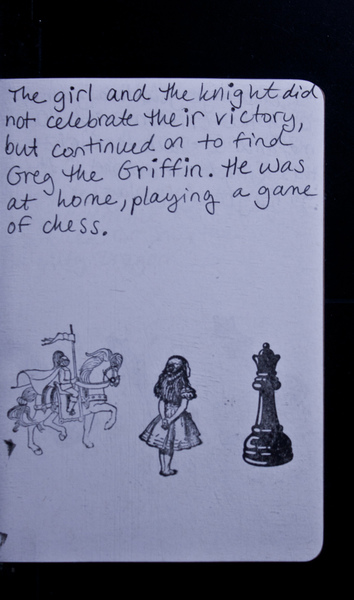 The girl and the knight did
not celebrate their victory,
but continued on to find
Greg the Griffin. He was
at home, playing a game
of chess.